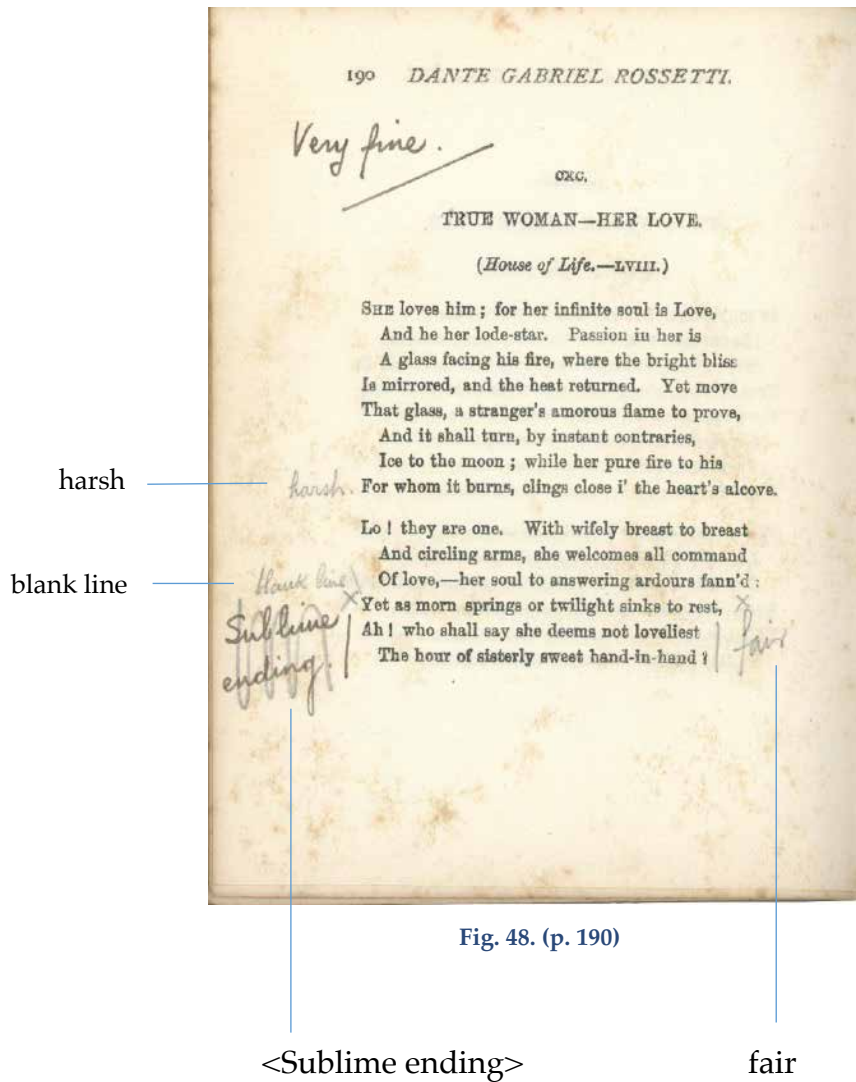 190 DANTE GABRIEL ROSSETTI.
Very fine.
CXC.
TRUE WOMAN—HER LOVE.
(House of Life.—LVIII.)
SHE loves him; for her infinite soul is Love,
And he her lode-star. Passion in her is
A glass facing his fire, where the bright bliss
Is mirrored, and the heat returned. Yet move
That glass, a stranger's amorous flame to prove,
And it shall turn, by instant contraries,
Ice to the moon; while her pure fire to his
harsh
harsh. For whom it burns, clings close i' the heart's alcove.
Lo! they are one. With wifely breast to breast
And circling arms, she welcomes all command
blank line
blank line Of love,—her soul to answering ardours fann'd:
× Yet as morn springs or twilight sinks to rest, ×
Sublime Ah! who shall say she deems not loveliest fair
ending. The hour of sisterly sweet hand-in-hand?
Fig. 48. (p. 190)
<Sublime ending> fair